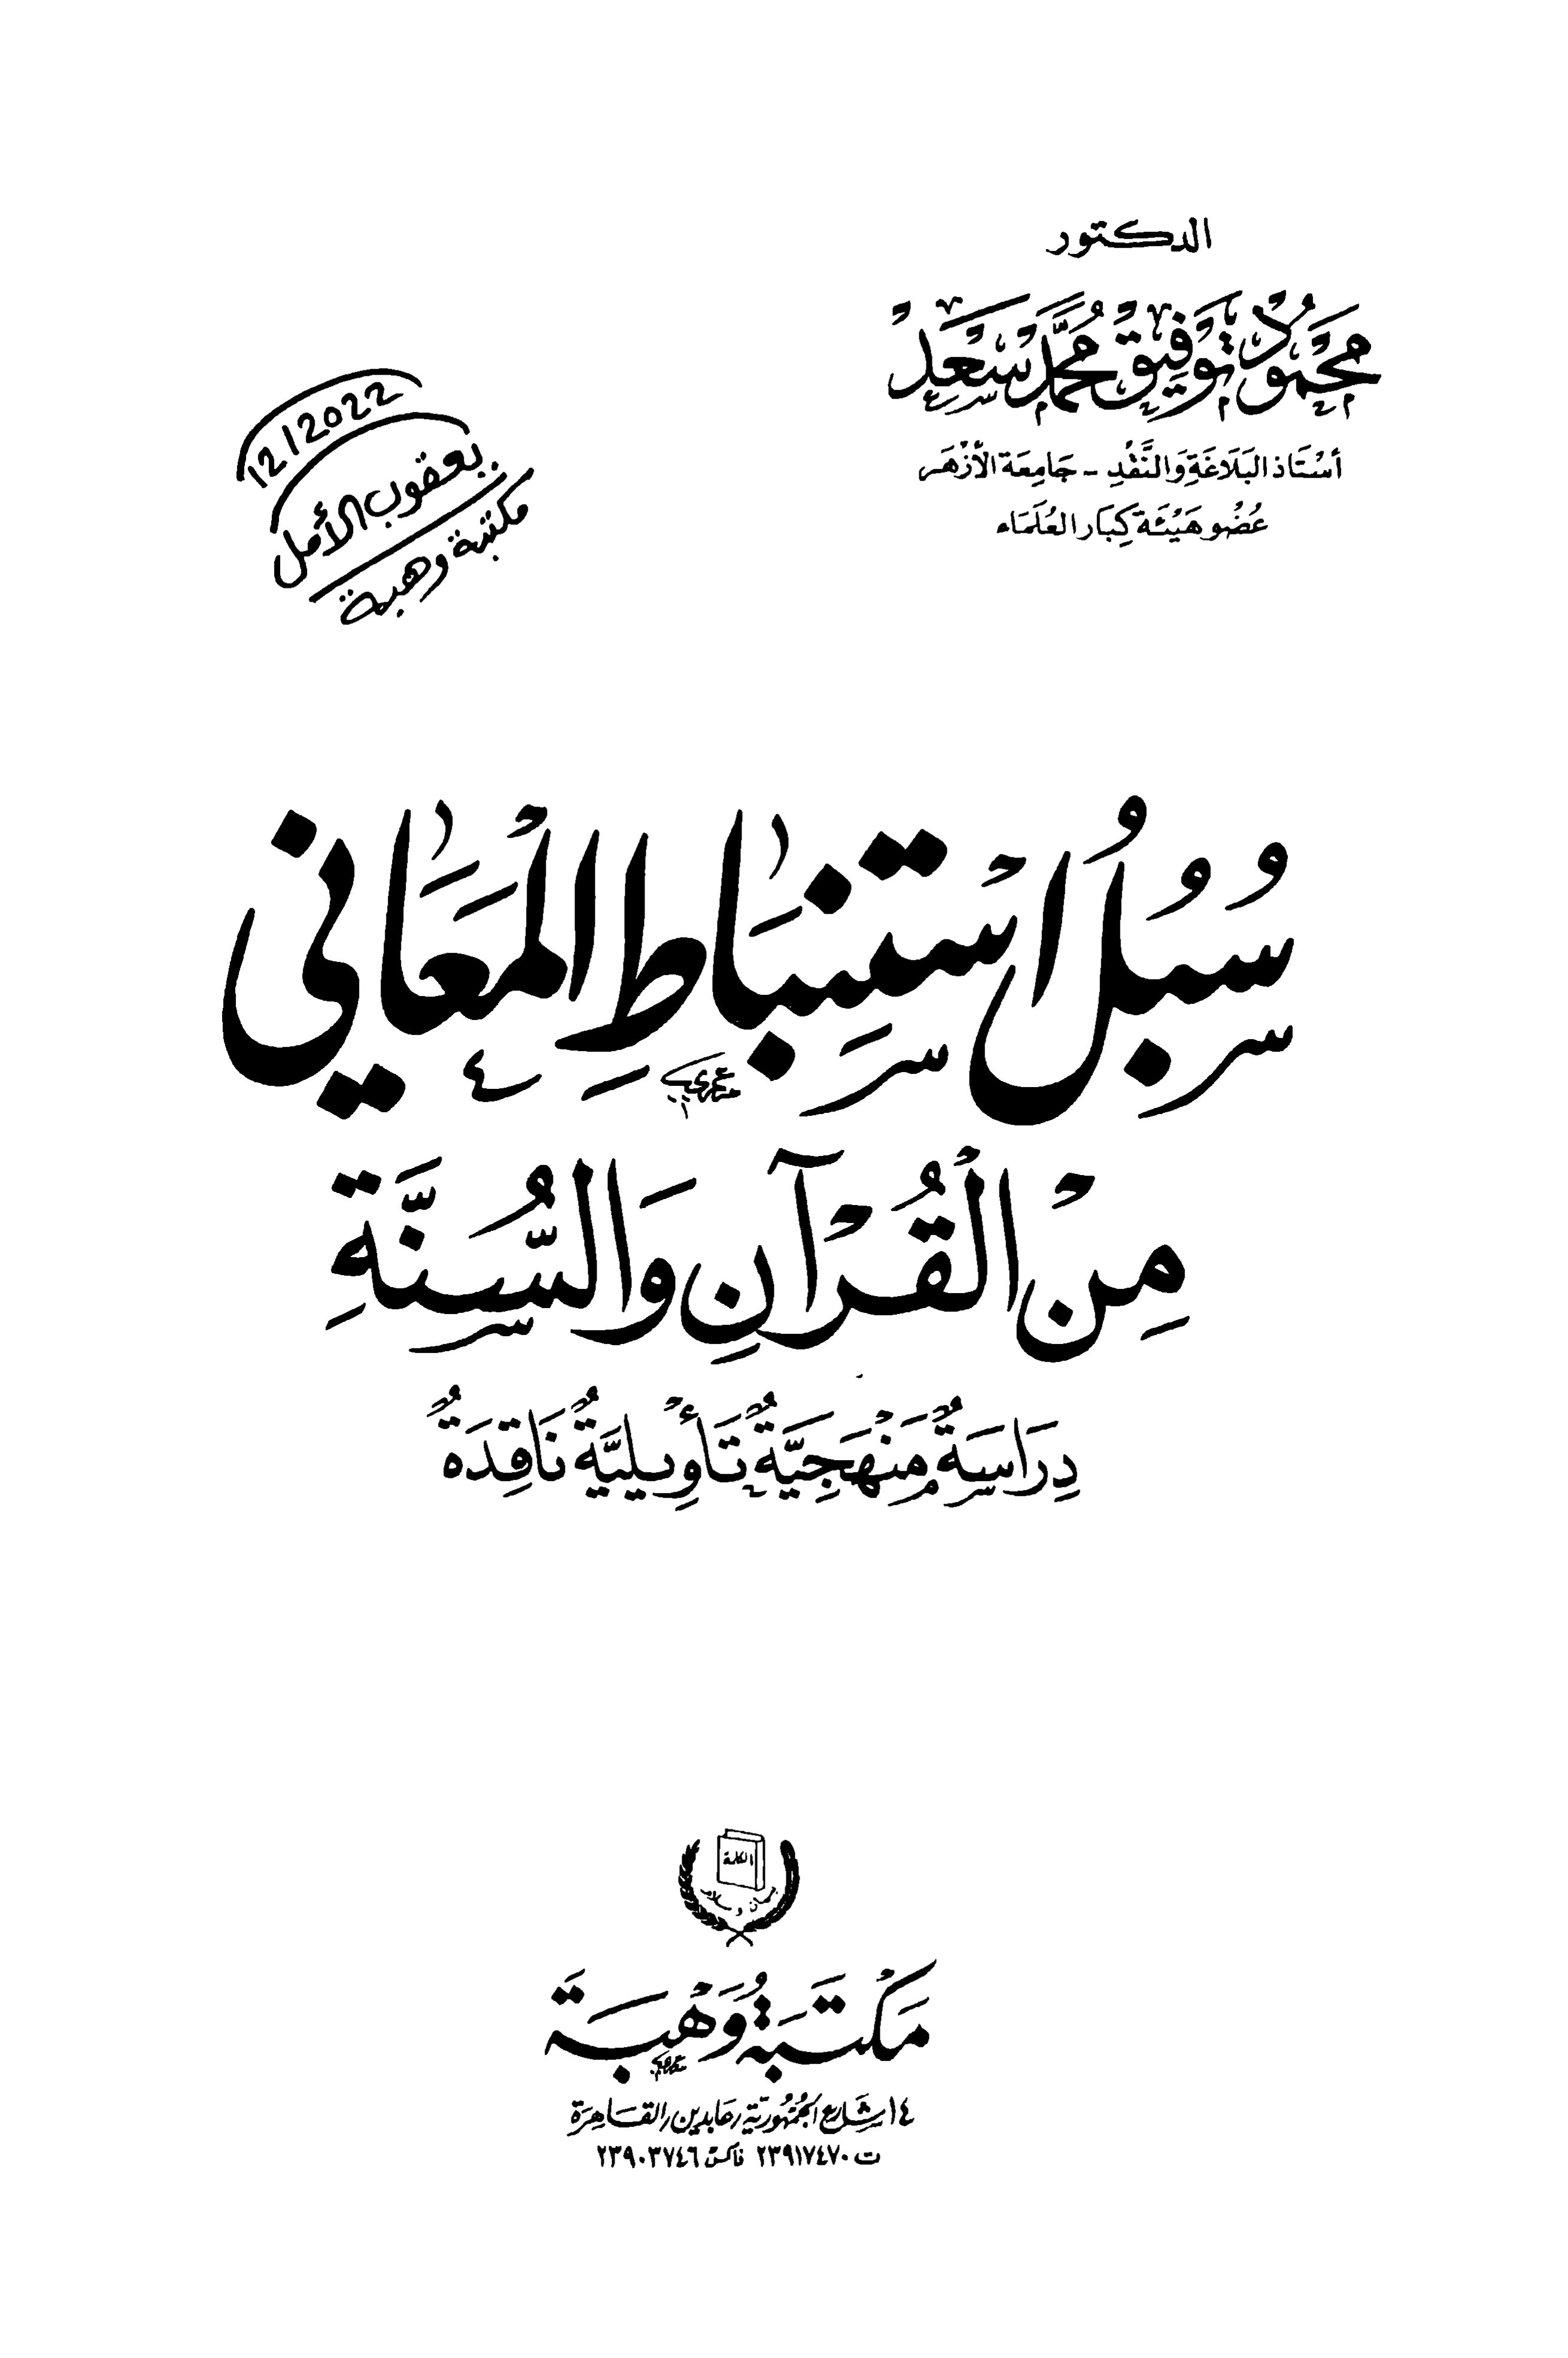 الدكتور
محمود توفيق محمد سعد
أستاذ البلاغة والنقد - جامعة الأزهر
عضو هيئة كبار العلماء
12/2022
يعقوب الأمل
مكتبة وهبة
سُبُلُ اسْتِنْبَاطِ الْمَعَانِي
مِنَ الْقُرْآنِ وَالسُّنَّةِ
دِرَاسَةٌ مَنْهَجِيَّةٌ تَأْوِيلِيَّةٌ نَاقِدَةٌ
الكلمة
مكتبة وهبة
١٤ شارع الجمهورية، عابدين، القاهرة
ت ٢٣٩١٧٤٧٠ فاكس ٢٣٩٠٣٧٤٦